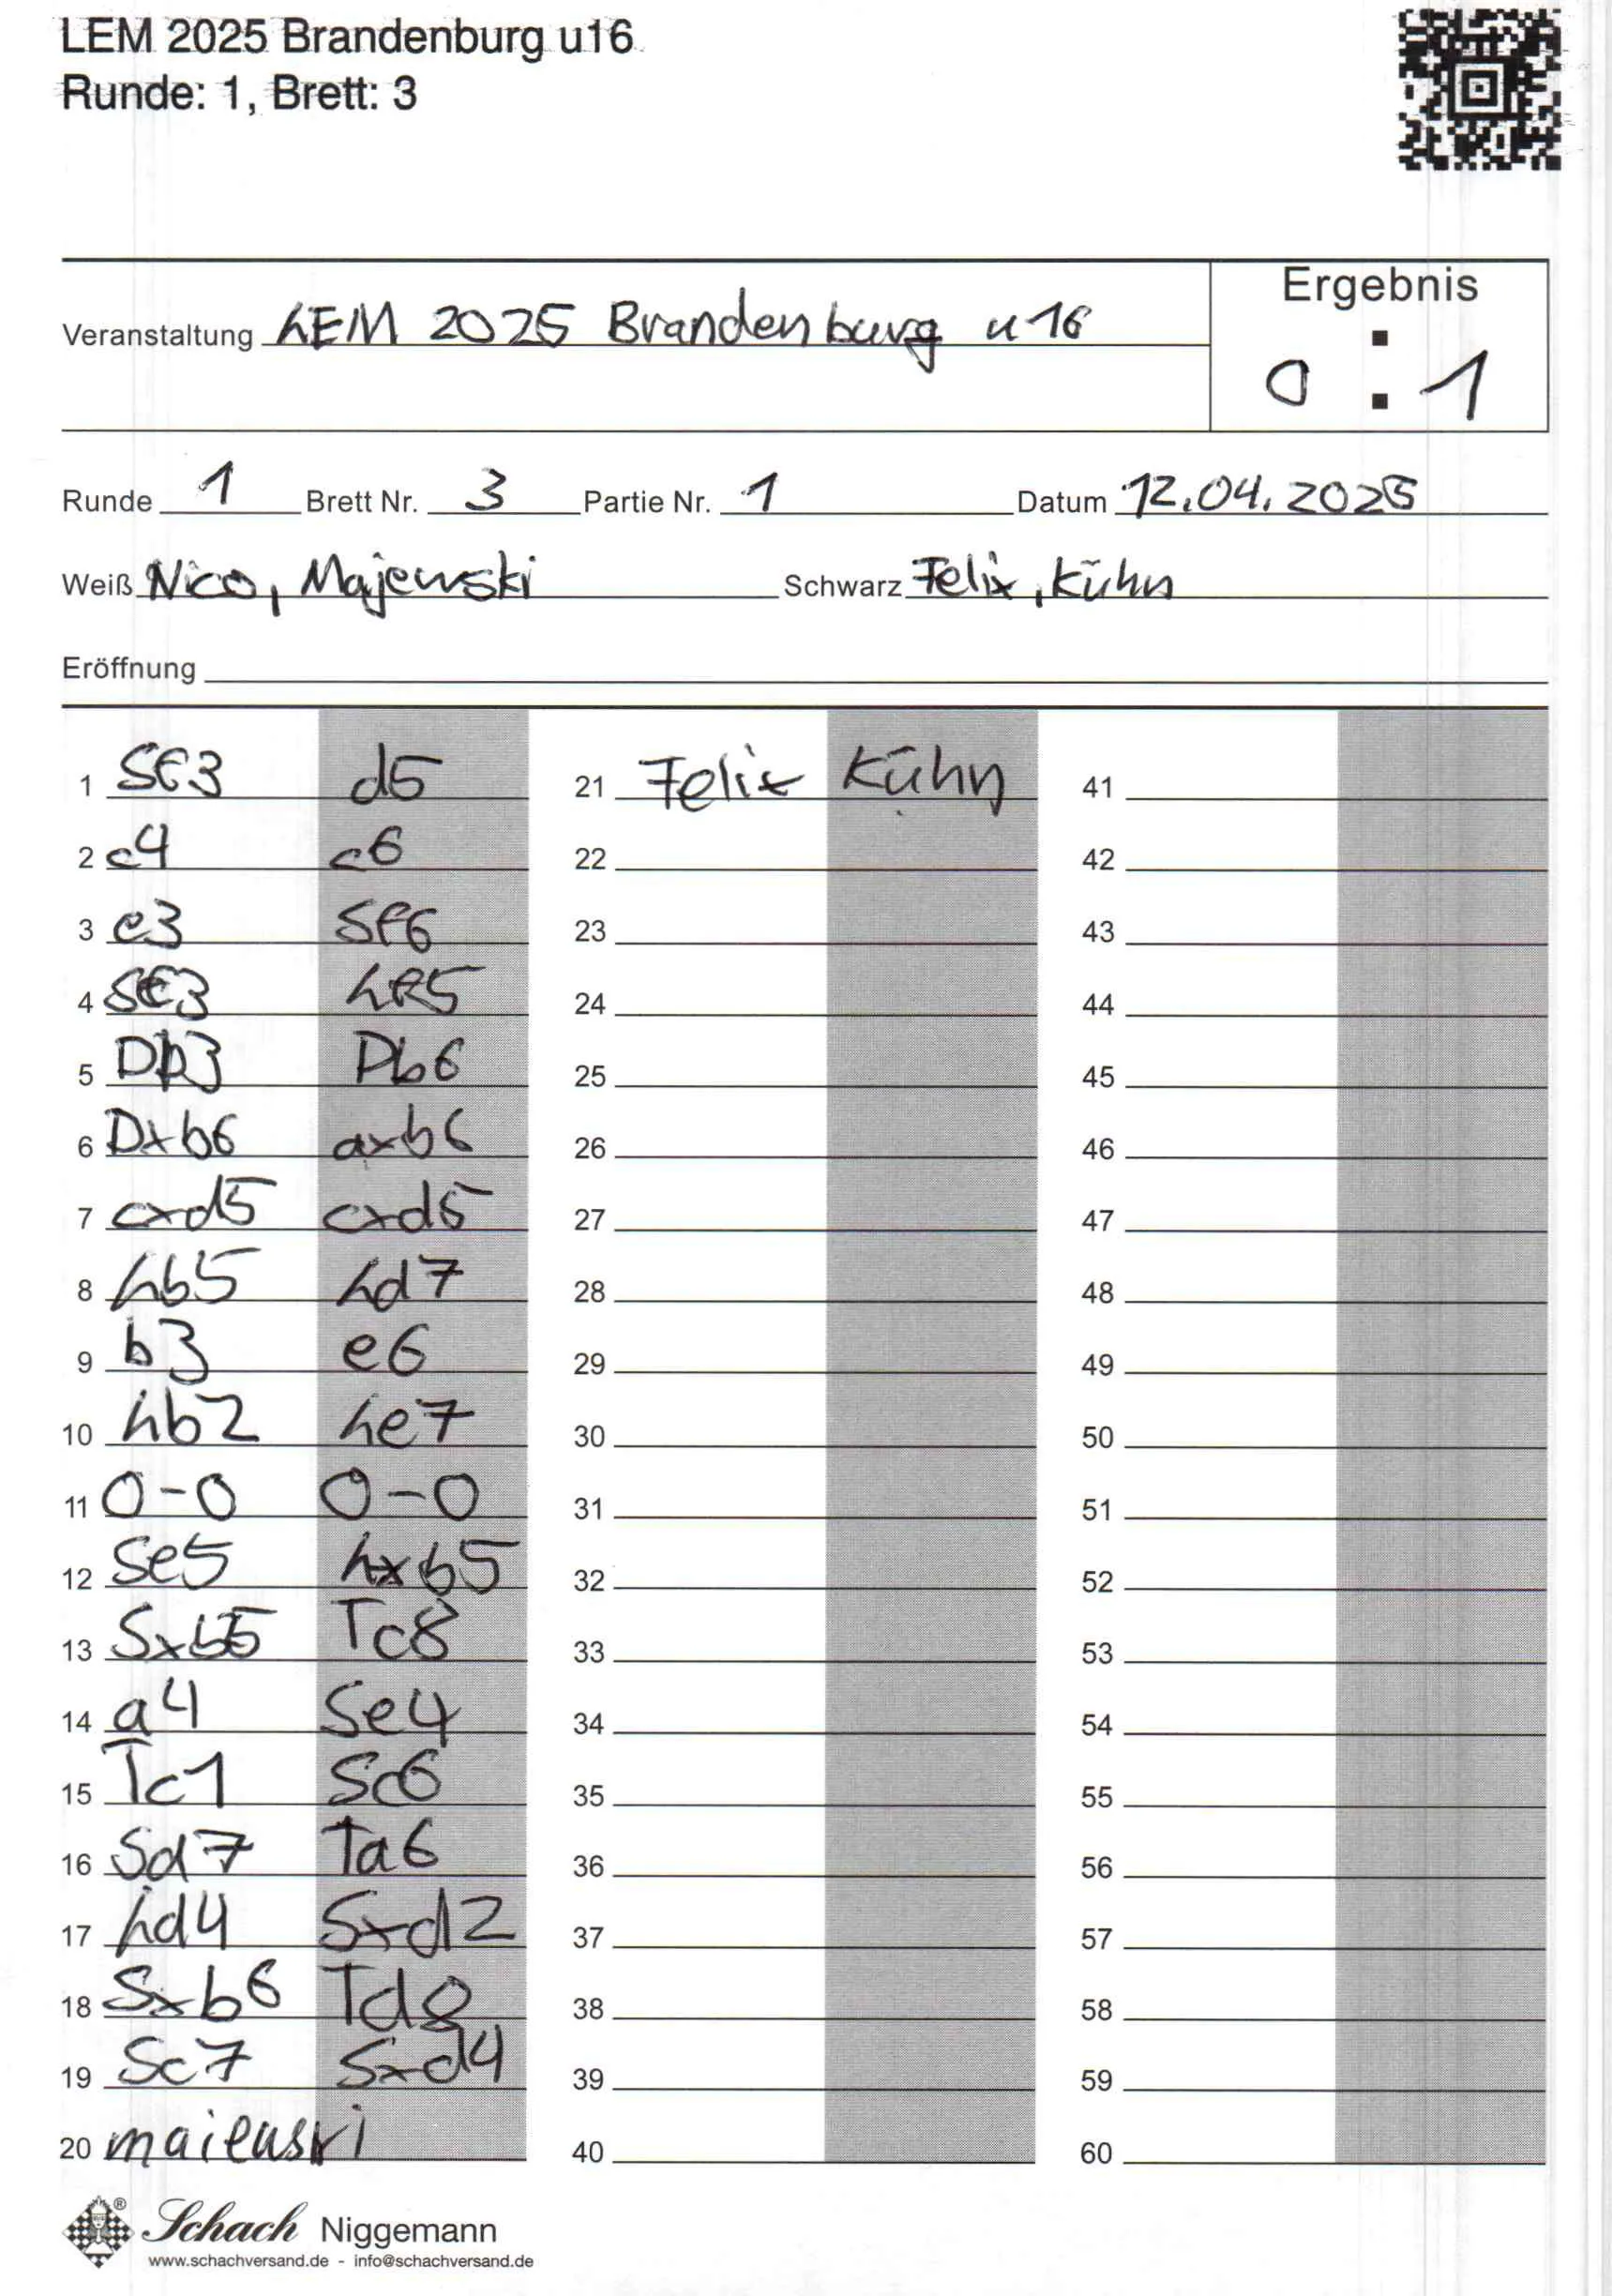 LEM 2025 Brandenburg u16
Runde: 1, Brett: 3
Ergebnis
Veranstaltung LEM 2025 Brandenburg u16
0 : 1
Runde 1 Brett Nr. 3 Partie Nr. 1 Datum 12.04.2025
Weiß Nico, Majewski Schwarz Felix, Kühn
Eröffnung
1 Sf3 d5 21 Felix Kühn 41
2 c4 c6 22 42
3 e3 Sf6 23 43
4 Sc3 Lf5 24 44
5 Db3 Db6 25 45
6 Dxb6 axb6 26 46
7 cxd5 cxd5 27 47
8 Lb5 Ld7 28 48
9 b3 e6 29 49
10 Lb2 Le7 30 50
11 0-0 0-0 31 51
12 Se5 Lxb5 32 52
13 Sxb5 Tc8 33 53
14 a4 Se4 34 54
15 Tc1 Sc6 35 55
16 Sd7 Ta6 36 56
17 Ld4 Sxd2 37 57
18 Sxb6 Td8 38 58
19 Sc7 Sxd4 39 59
20 maiewski 40 60
Schach Niggemann
www.schachversand.de - info@schachversand.de